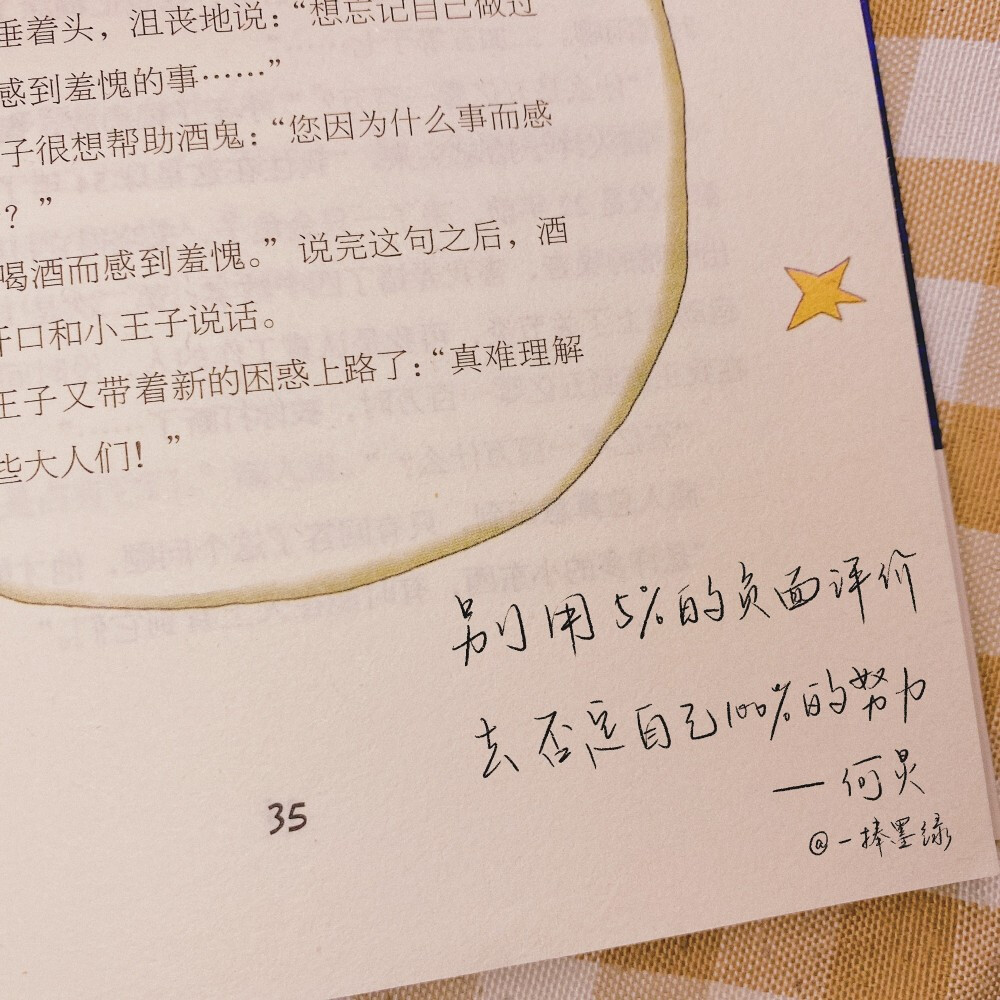 垂着头，沮丧地说：“想忘记自己做过
感到羞愧的事……”
子很想帮助酒鬼：“您因为什么事而感
？”
喝酒而感到羞愧。”说完这句之后，酒
开口和小王子说话。
王子又带着新的困惑上路了：“真难理解
些大人们！”
别用5%的负面评价
去否定自己100%的努力
——何炅
35
@一捧墨绿